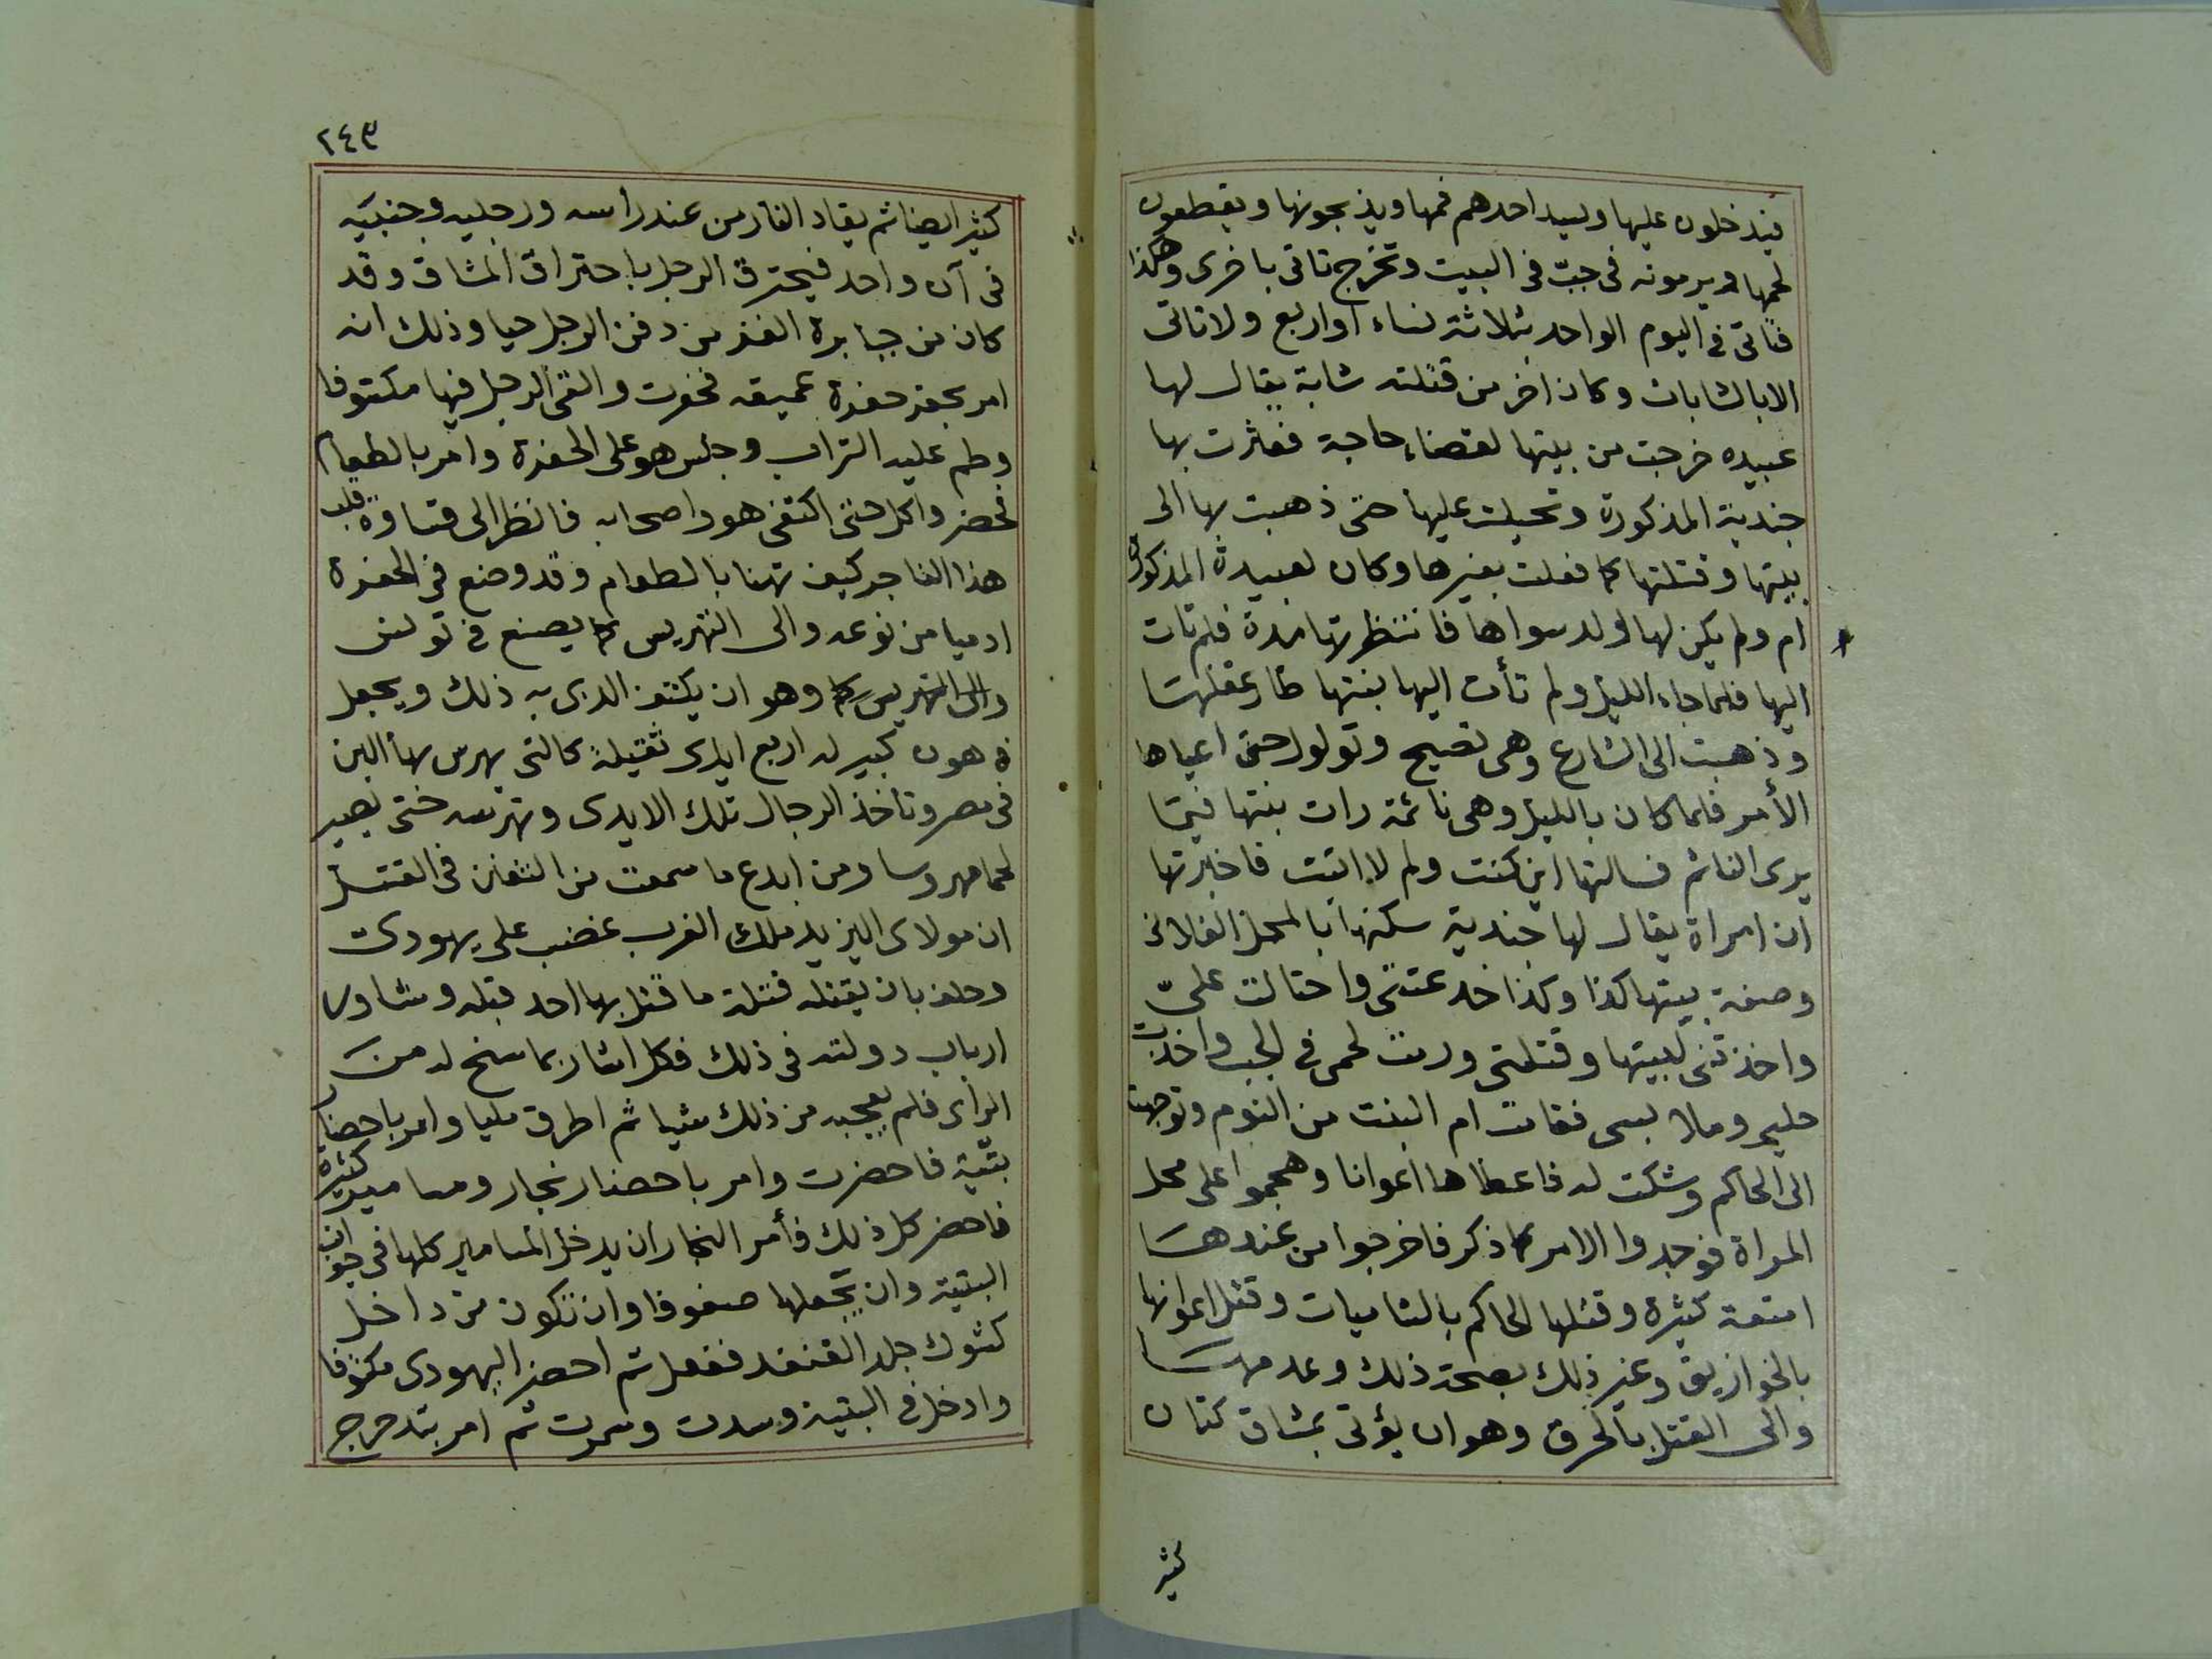 فيدخلون عليها ويسد احدهم فمها ويذبحونها ويقطعون
لحمها ويرمونه في جبّ في البيت وتخرج تاتى باخرى وهكذا
فتاتى في اليوم الواحد بثلاثة نساء او اربع ولا تاتى
الا بالشابات وكان اخر من قتلته شابة يقال لها
عبيده خرجت من بيتها لقضاء حاجة فعثرت بها
جندية المذكورة وتحيلت عليها حتى ذهبت بها الى
بيتها وقتلتها كما فعلت بغيرها وكان لعبيدة المذكورة
ام ولم يكن لها ولد سواها فانتظرتها مدة فلم تات
اليها فلما جاء الليل ولم تأت اليها بنتها طار عقلها
وذهبت الى الشارع وهى تصيح وتولول حتى اعياها
الأمر فلما كان بالليل وهى نائمة رات بنتها فيما
يرى النائم فسالتها اين كنت ولم لا اتيت فاخبرتها
ان امراة يقال لها جندية سكنها بالمحل الفلانى
وصفة بيتها كذا وكذا خدعتنى واحتالت علىّ
واخذتنى لبيتها وقتلتنى ورمت لحمى في الجب واخذت
حليى وملابسى فقامت ام البنت من النوم وتوجهت
الى الحاكم وشكت له فاعطاها اعوانا وهجموا على محل
المراة فوجدوا الامر كما ذكر فاخرجوا من عندها
امتعة كثيرة وقتلها الحاكم بالشاميات وقتل اعوانها
بالخوازيق وغير ذلك بصحة ذلك وعدمها
والى القتل بالحرق وهو ان يؤتى بمشاق كتان
كثير
٢٤٣
كثير ايضا ثم يقاد النار من عند راسه ورجليه وجنبيه
في آن واحد فيحترق الرجل باحتراق المشاق وقد
كان من جبابرة الغز من دفن الرجل حيا وذلك انه
امر بحفر حفرة عميقه فحفرت والقى الرجل فيها مكتوفا
وطم عليه التراب وجلس هو على الحفرة وامر بالطعام
فحضر واكل حتى اكتفى هو واصحابه فانظر الى قساوة قلب
هذا الفاجر كيف تهنا بالطعام وقد وضع في الحفرة
ادميا من نوعه والى التهريس كما يصنع في تونس
والى التهريس كما وهو ان يكتف الذى به ذلك ويجعل
في هون كبير له اربع ايادى ثقيلة كالتى يهرس بها البن
في مصر وتاخذ الرجال تلك الايدى وتهرسه حتى يصير
لحما مهروسا ومن ابدع ما سمعت من التفنن في القتل
ان مولاى اليزيد ملك الغرب غضب على يهودى
وحلف بان يقتله قتلة ما قتل بها احد قبله وشاور
ارباب دولته في ذلك فكل اشار بما سنح له من
الراى فلم يعجبه من ذلك شيا ثم اطرق مليا وامر باحضار
بتية فاحضرت وامر باحضار نجار ومسامير كثيرة
فاحضر كل ذلك فأمر النجار ان يدخل المسامير كلها في جوانب
البتية وان يجعلها صفوفا وان تكون من داخل
كشوك جلد القنفد ففعل ثم احضر اليهودى مكتوفا
وادخل في البتية وسدت وسمرت ثم امر بتدحرج